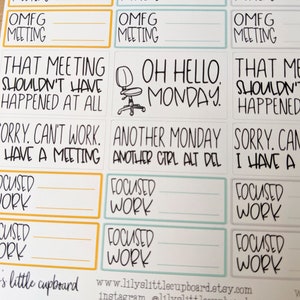 OMFG MEETING
OMFG MEETING
OMFG MEETING
THAT MEETING SHOULDN'T HAVE HAPPENED AT ALL
OH HELLO, MONDAY.
THAT MEE
SHOULDN'T
HAPPENED
SORRY. CAN'T WORK.
I HAVE A MEETING
ANOTHER MONDAY
ANOTHER CTRL ALT DEL
SORRY. CAN
I HAVE A
FOCUSED WORK
FOCUSED WORK
FOCUSED WORK
FOCUSED WORK
FOCUSED WORK
FOCUSED WORK
's little cupboard
www.lilyslittlecupboard.etsy.com
instagram